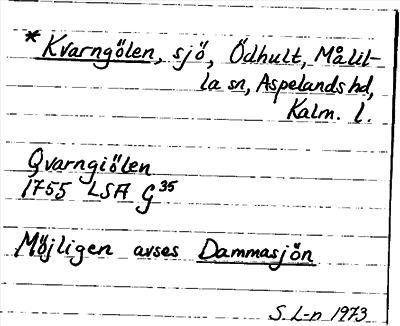 * Kvarngölen, sjö, Ödhult, Målil-
la sn, Aspelands hd,
Kalm. l.
Qvarngiölen
1755 LSA G 35
Möjligen avses Dammasjön
S. L-n 1973